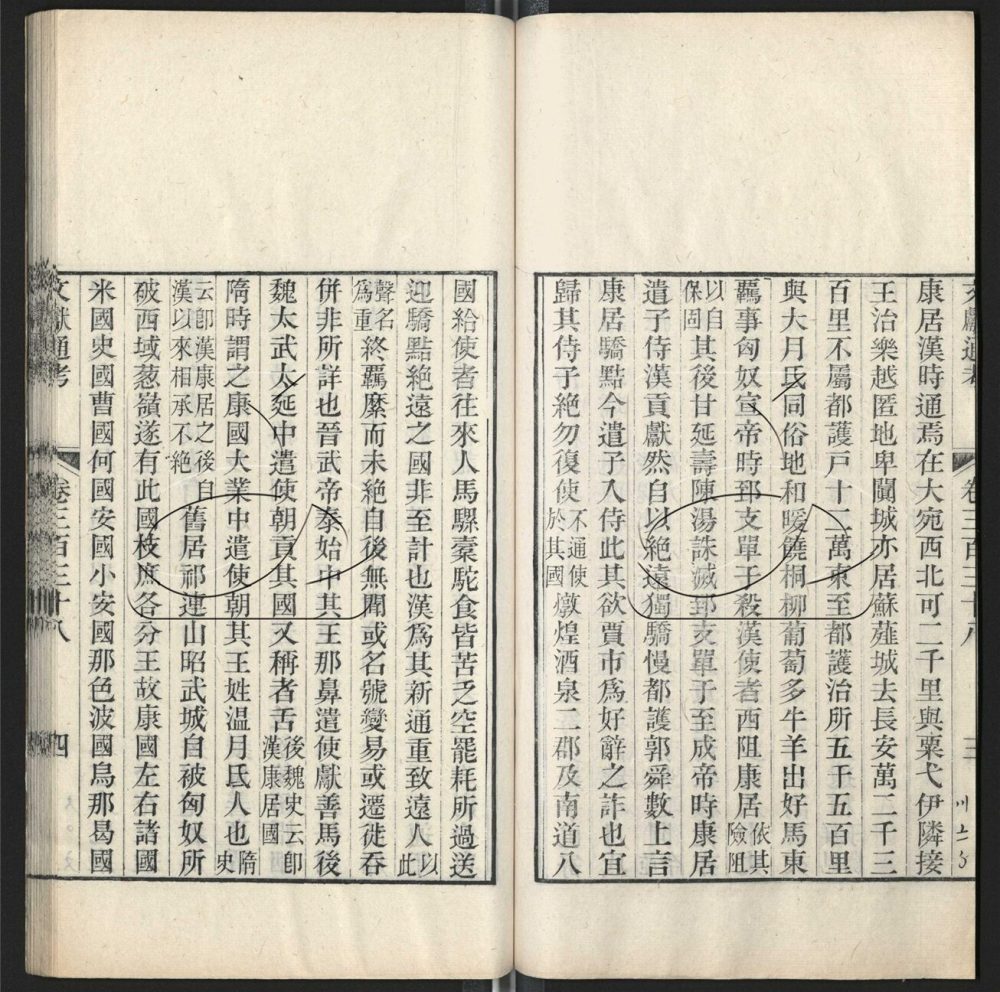 文獻通考 卷三百三十八 三
康居漢時通焉在大宛西北可二千里與粟弋伊隣接
王治樂越匿地卑闐城亦居蘇薤城去長安萬二千三
百里不屬都護戶十二萬東至都護治所五千五百里
與大月氏同俗地和暖饒桐柳葡萄多牛羊出好馬東
羈事匈奴宣帝時郅支單于殺漢使者西阻康居依其險阻
以自保固其後甘延壽陳湯誅滅郅支單于至成帝時康居
遣子侍漢貢獻然自以絶遠獨驕慢都護郭舜數上言
康居驕黠今遣子入侍此其欲賈市爲好辭之詐也宜
歸其侍子絶勿復使不通使於其國燉煌酒泉二郡及南道八
國給使者往來人馬騾橐駝食皆苦乏空罷耗所過送
迎驕黠絶遠之國非至計也漢爲其新通重致遠人以此
聲名爲重終羈縻而未絶自後無聞或名號變易或遷徙吞
併非所詳也晉武帝泰始中其王那鼻遣使獻善馬後
魏太武太延中遣使朝貢其國又稱者舌後魏史云卽漢康居國
隋時謂之康國大業中遣使朝其王姓溫月氏人也隋史
云卽漢康居之後自漢以來相承不絶舊居祁連山昭武城自被匈奴所
破西域葱嶺遂有此國枝庶各分王故康國左右諸國
米國史國曹國何國安國小安國那色波國烏那曷國
文獻通考 卷三百三十八 四